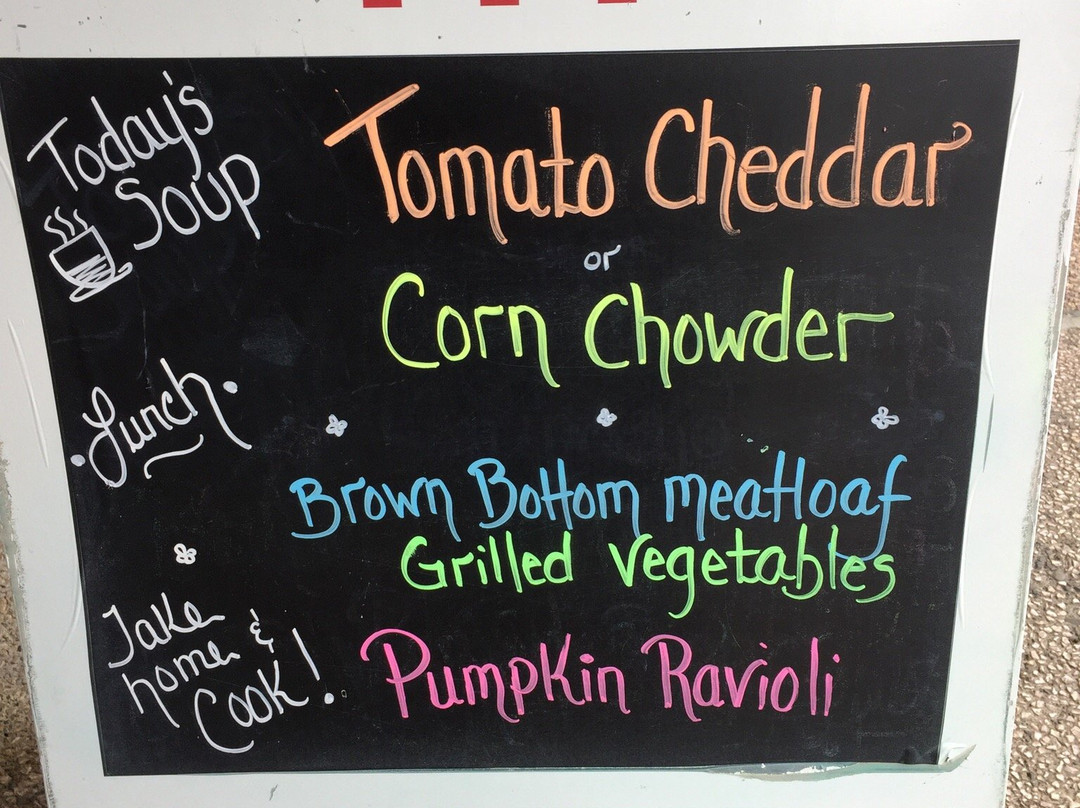 Today's
Soup
Tomato Cheddar
or
Corn Chowder
Lunch
Brown Bottom meatloaf
Grilled vegetables
Take
home &
Cook!
Pumpkin Ravioli